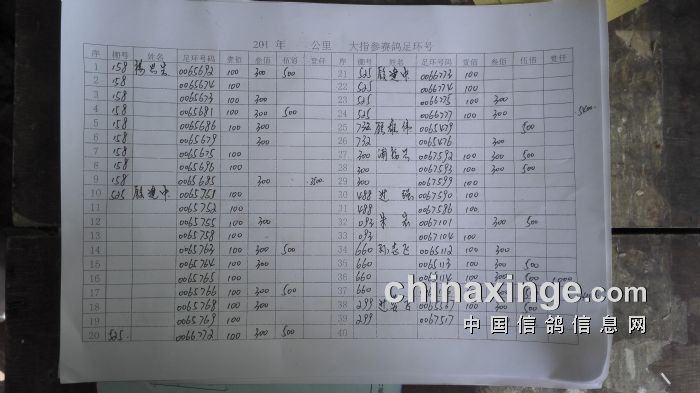 201 年 公里 大指参赛鸽足环号
序 棚号 姓名 足环号码 壹佰 叁佰 伍佰 壹仟 序 棚号 姓名 足环号码 壹佰 叁佰 伍佰 壹仟
1 158 0065692 100 300 500 21 525 殷建中 0066773 100
2 158 0065674 100 22 525 0066774 100
3 158 0065673 100 300 23 525 0066775 100 300
4 158 0065681 100 300 500 24 525 0066777 100 300 5400
5 158 0065686 100 300 25 732 0065479 500
6 158 0065679 300 26 732 0065476 300
7 158 0065675 100 27 300 0067592 100 300 500
8 158 0065696 100 28 300 0067593 100 300 500
9 158 0065685 300 3500 29 300 0067599 100
10 525 殷建中 0065751 100 30 488 0067590 100
11 0065752 100 31 488 0067586 100
12 0065755 100 300 32 093 朱 0067101 300 500
13 0065758 100 33 093 0067104 100
14 0065763 100 300 500 34 660 孙志飞 0065112 100 300
15 0065764 100 300 35 660 0065113 100 300 500
16 0065765 100 36 660 0065114 300 500 1000
17 0065766 100 300 500 37 660 300 500
18 0065768 100 300 38 299 0065567 300 500
19 0065769 100 39 299 0067517
20 525 0066772 100 300 500 40
chinaxinge.com
中国信鸽信息网